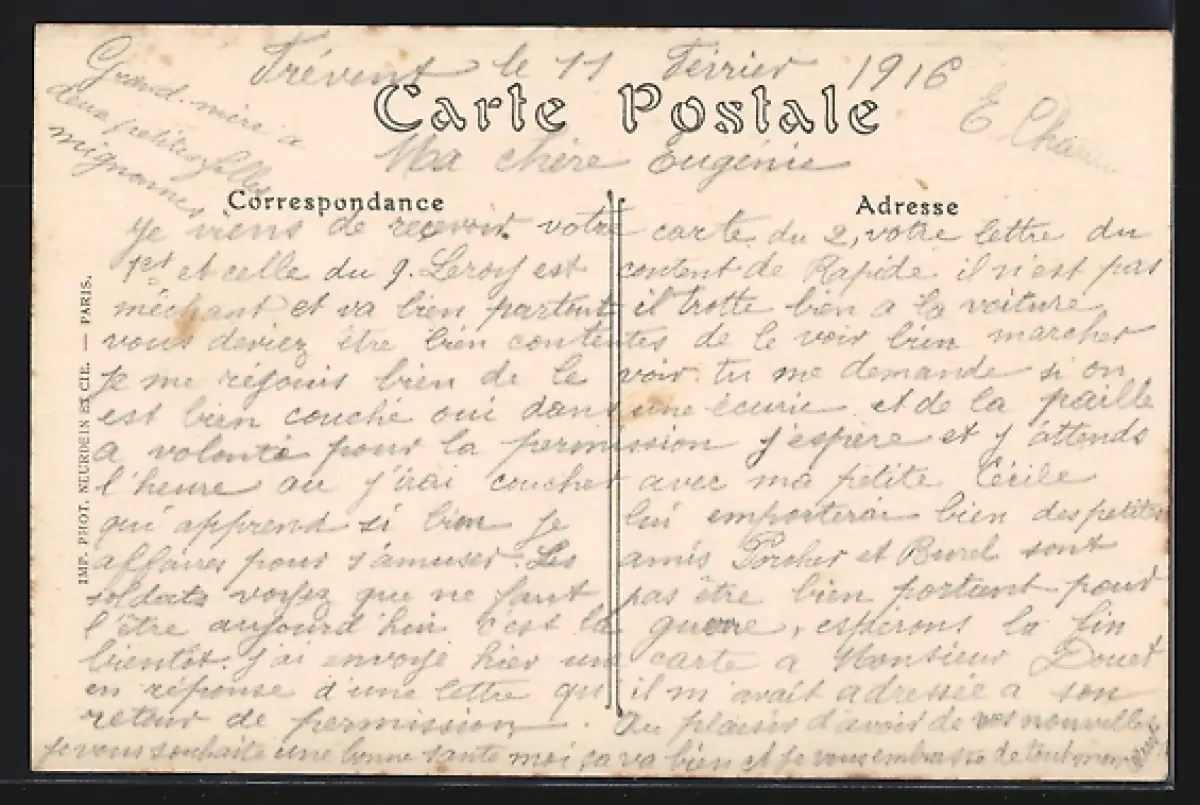 Frévent le 11 Février 1916
Grand-mère a
deux petites filles
mignonnes
Carte Postale
E
Ma chère Eugénie
Correspondance
Adresse
Je viens de recevoir votre carte du 2, votre lettre du
1er et celle du 9. Leroy est content de Rapide il n'est pas
méchant et va bien partout il trotte bien a la voiture
vous deviez être bien contentes de le voir bien marcher
Je me réjouis bien de le voir. tu me demande si on
est bien couché oui dans une écurie et de la paille
a volonté pour la permission j'espère et j'attends
l'heure ou j'irai coucher avec ma petite Cécile
qui apprend si bien Je lui emporterai bien des petites
affaires pour s'amuser. Les amis Porcher et Burel sont
soldats voyez que ne faut pas être bien portant pour
l'être aujourd'hui c'est la guerre, esperons la fin
bientôt. j'ai envoyé hier une carte a Monsieur Douet
en réponse d'une lettre qu'il m'avait adressée a son
retour de permission. Au plaisir d'avoir de vos nouvelles
je vous souhaite une bonne santé moi, ça va bien et je vous embrasse de tout mon
IMP. PHOT. NEURDEIN ET CIE. — PARIS.